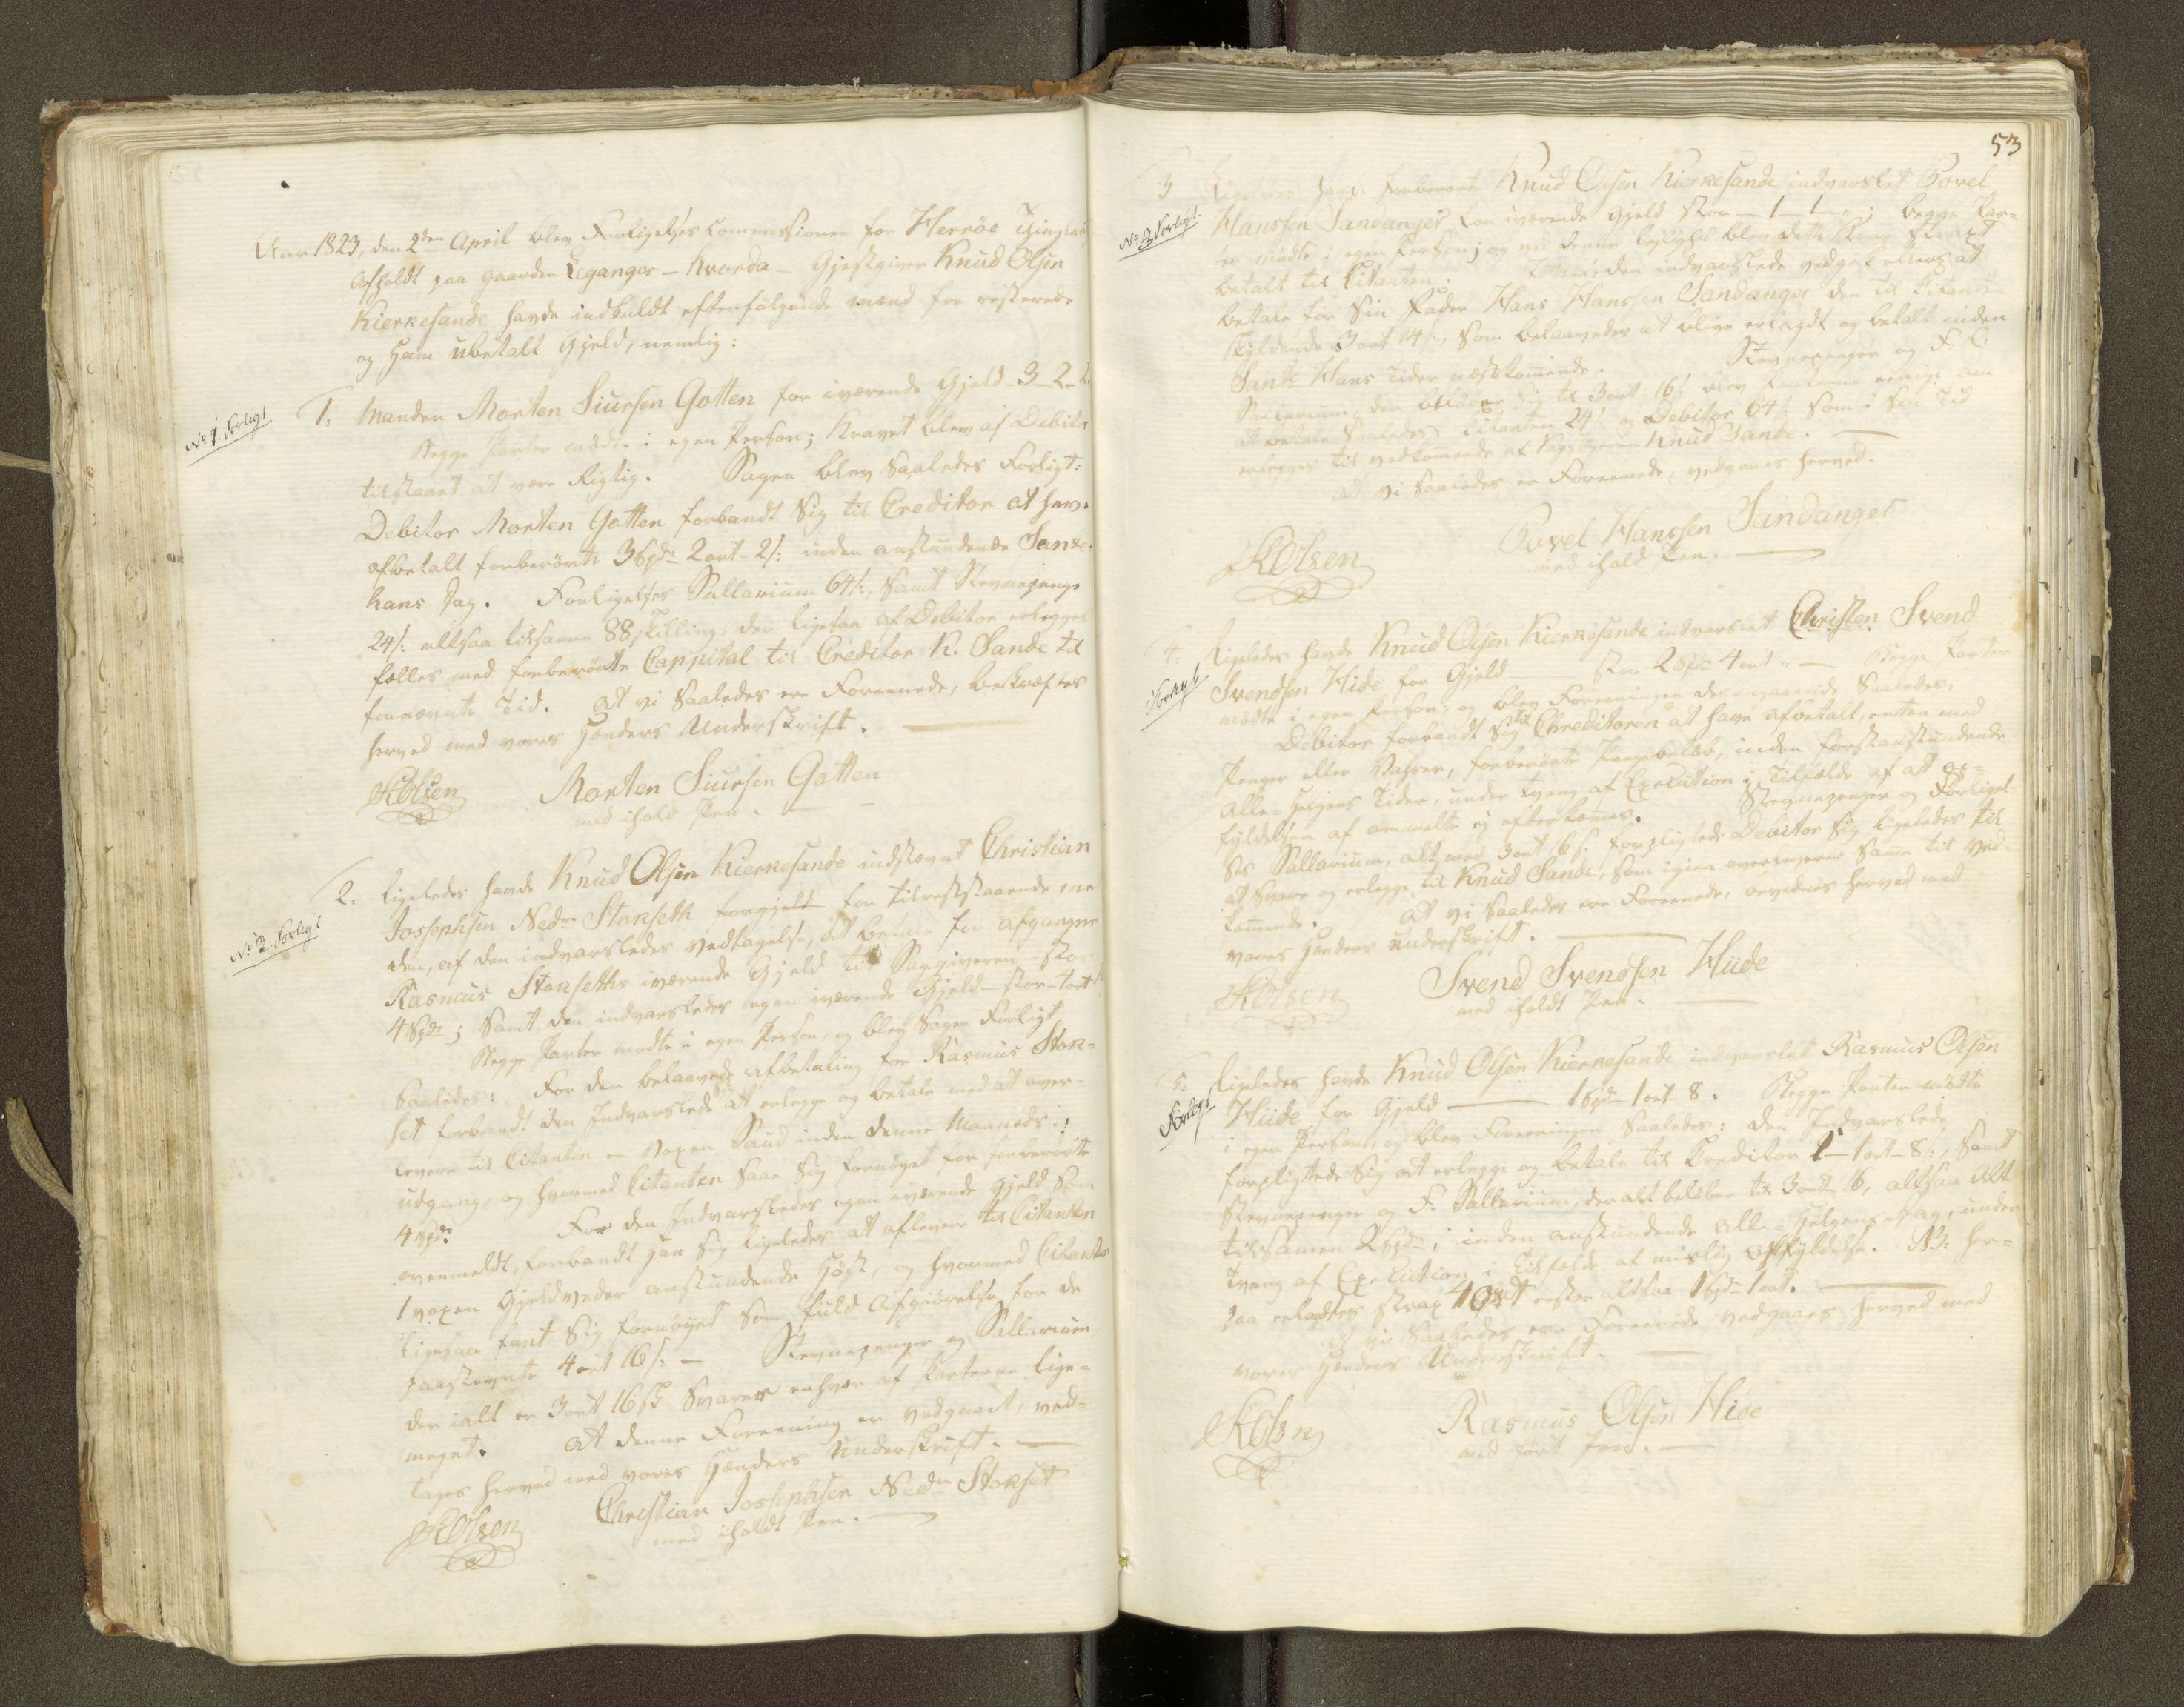 Aar 1823, den 2den April blev Forligelses Commissionen for Herröe Thinglau
afholdt paa Gaarden Leganger - hvorda - Gjestgiver Knud Olsen
Kierkesande havde indkaldt efterfølgende mænd for resterende
og Ham ubetalt Gjeld, nemlig:
No 1. Forligt
1. Manden Morten Siursen Gotten for iværende Gjeld 3_2_2.
Begge Parter mødte i egen Person; kravet blev af Debitor
tilstaaet at være Rigtig. Sagen blev Saaledes Forligt:
Debitor Morten Gotten forbandt Sig til Creditor at have
afbetalt forberørte 3 Spd 2 ort - 2 s: inden anstundende Sanct
hans Dag. Forligelses Sallarium 64 s:, Samt Stevnepenge
24 s: altsaa tilsamen 88 skilling, der ligesaa af Debitor erlegges
fælles med forberørte Cappital til Creditor K. Sande til
fornævnte Tid. At vi Saaledes ere Foreenede, bekræftes
herved med vores Hænders Underskrift.
KOlsen Morten Siursen Gotten
med iholdt Pen.
2. Ligeledes havde Knud Olsen Kierkesande indstævnt Christian
No 2. Forligt
Jossephsen Nedre Storseth for gjeld for tilreststaaende
den, af den indvarsledes vedtagelse, at betale for afgangne
Rasmus Storseths iværende Gjeld til Saggiveren - stor
4 Spd; Samt den indvarsledes egen iværende Gjeld - stor - 4 ort
Begge Parter mødte i egen Person, og blev Sagen Forligt
Saaledes: For den belaavede afbetaling for Rasmus Stor=
set forbandt den Indvarslede at erlegge og betale med at over=
levere til Citanten en voxen Saud inden denne Maaneds
udgang, og hvormed Citanten Saae Sig fornøyet for forberørte
4 Spd. For den Indvarsledes egen iværende Gjeld som
ovenmeldt, forbandt han Sig ligeledes at aflevere til Citanten
1 voxen Gjeldveder anstundende Høst, og hvormed Citanten
ligesaa fant Sig fornøyet som fuld Afgiørelse for de
paastevnte 4 ort 16 s: - Stevnepenger og Sallarium
der ialt er 3 ort 16 s Svarer enhver af Parterne lige
meget. At denne Foreening er vedgaaet, ved=
tages herved med vores Hænders Underskrift.
KOlsen Christian Jossephsen Nedre Storset
med iholdt Pen.
53
3 Ligeledes havde forberørte Knud Olsen Kierkesande indvarslet Povel
No 3 Forligt.
Hanssen Sandanger for iværende Gjeld stor - 1_1_"; begge Par=
ter mødte i egen Person; og ved denne leylighed blev dette strax
betalt til Citanten. den indvarslede vedgik ellers at
betale for Sin Fader Hans Hanssen Sandanger den til Citanten
skyldende 3 ort 14 s:, Som belaavedes at blive erlagdt og betalt inden
Sanct Hans Tider næstkommende. Stevnepenger og F.
Sallarium, der beløber Sig til 3 ort 16 s: blev Parterne eenige om
at betale Saaledes: Citanten 24 s: og Debitor 64 s: som i sin Tid
erlegges til vedkommende af Saggiveren Knud Sande.
At vi Saaledes er Foreenede, vedgaaes herved.
KOlsen Povel Hanssen Sandanger
med ihold Pen.
4. Ligeledes havde Knud Olsen Kierkesande indvarslet Christen Svend
Forligt
Svendsen Hide for Gjeld stor 2 Spd 4 ort " - Begge Parter
mødte i egen Person, og blev Foreeningen desangaaende Saaledes:
Debitor forbandt Sig til Chreditoren at have afbetalt, enten med
Penger eller Vahrer, forberørte Pengebeløb, inden førstanstundende
Alle=helgens Tider, under tvang af Execution i Tilfælde af at op=
fyldelsen af ommelte ej efterkomes. Stevnepenger og Forligel=
ses Sallarium, alt med 3 ort 16 s: forpligtede Debitor Sig ligeledes til
at Svare og erlegge til Knud Sande, som igien overleverer Samme til ved
kommende. At vi Saaledes ere Foreenede, herved med
vores Hænders underskrift.
KOlsen Svend Svendsen Hiide
med iholdt Pen.
5. Ligeledes havde Knud Olsen Kierkesande indvarslet Rasmus Olsen
Forligt
Hiide for Gjeld 1 Spd 1 ort 8. Begge Parter mødte
i egen Person, og blev Foreeningen Saaledes: Den Indvarslede
forpligtede Sig at erlegge og betale til Creditor 1 - 1 ort - 8 s:, Samt
Stevnepenger og F: Sallarium, der alt beløber til 3 ort 16, altsaa Alt
tilsamen 2 Spd; inden anstundende Alle=Helgens dag, under
Tvang af Execution i Tilfælde af mislig Opfyldelse. NB: her=
paa erlagdes strax 4 ort rester altsaa 1 Spd 1 ort.
At vi Saaledes ere Foreenede vedgaaes herved med
vores Hænders Underskrift.
KOlsen Rasmus Olsen Hide
med ført Pen.